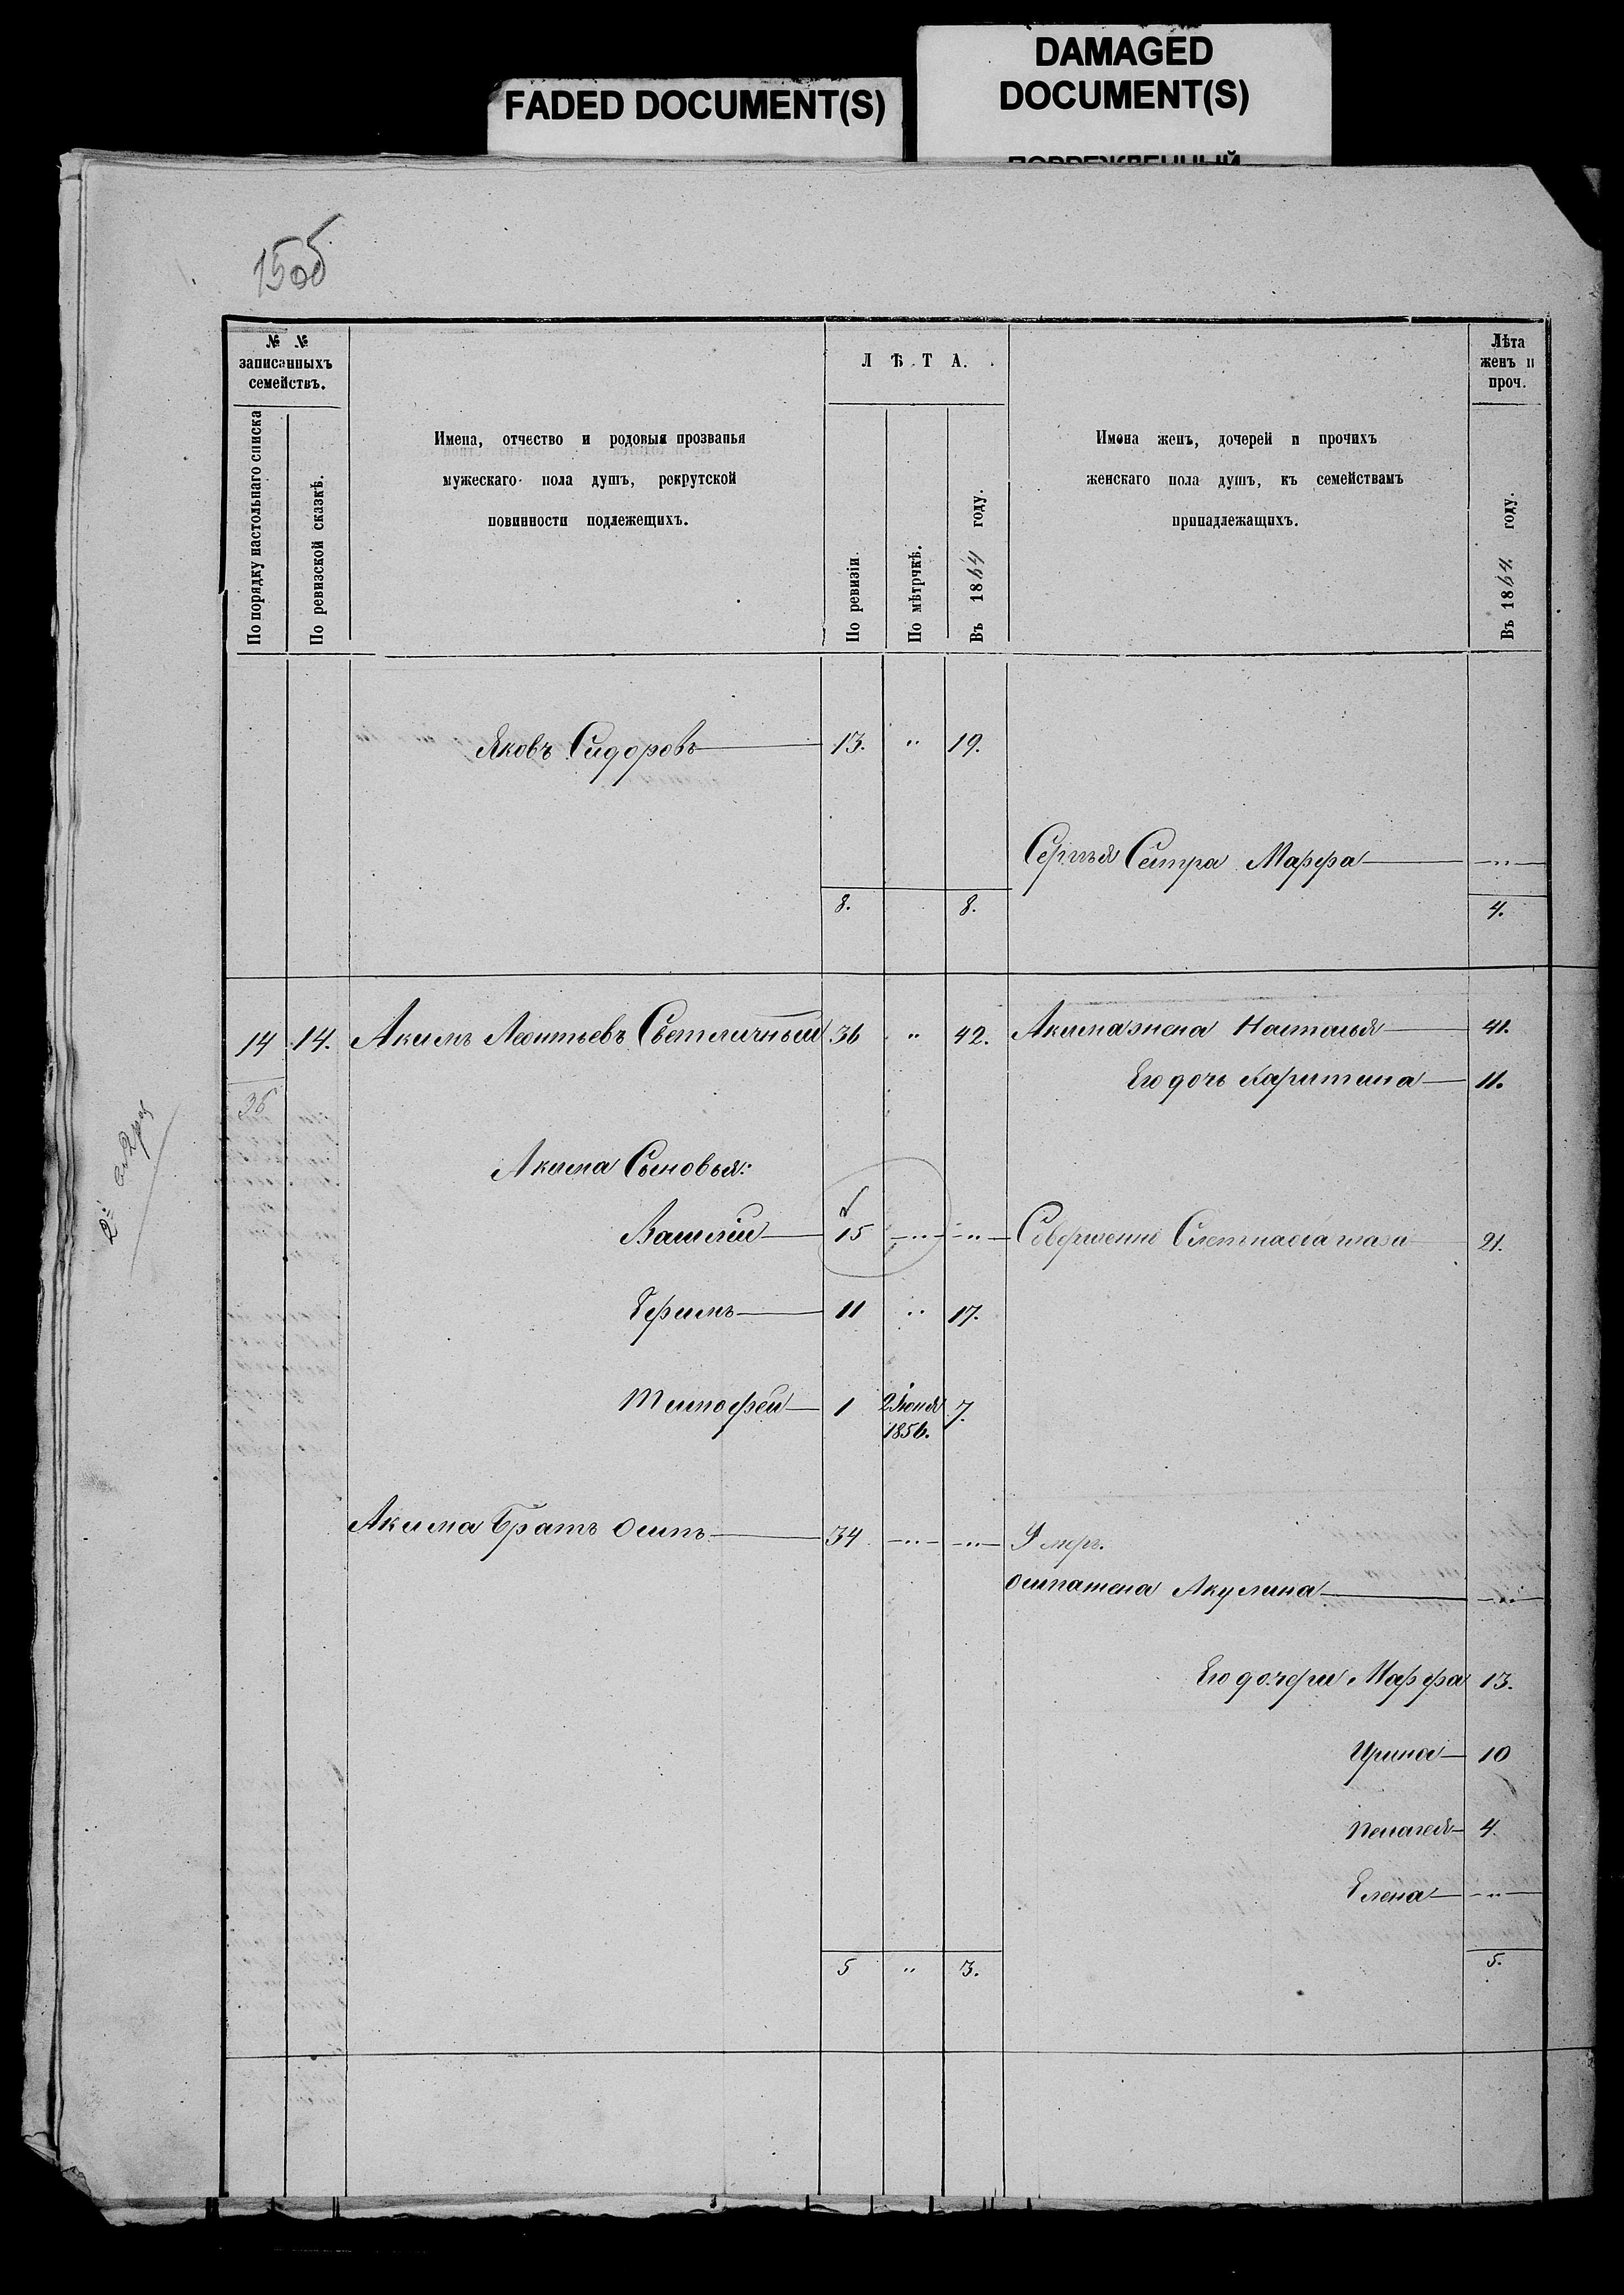 FADED DOCUMENT(S)
DAMAGED
DOCUMENT(S)
15об
№ №
записанныхъ
семействъ.
По порядку настольнаго списка
По ревизской сказкѣ.
Имена, отчество и родовыя прозванья
мужескаго пола душъ, рекрутской
повинности подлежещихъ.
ЛѢТА.
По ревизіи.
По мѣтрчкѣ.
Въ 1864 году.
Имена женъ, дочерей и прочихъ
женскаго пола душъ, къ семействамъ
принадлежащихъ.
Лѣта
женъ и
проч.
Въ 1864. году.
Яковъ Сидоровъ 13. " 19.
Сергѣя Сестра Марфа "
8. 8. 4.
14 14. Акимъ Леонтьевъ Светличный 36 " 42. Акима жена Наталья 41.
35 Его дочь Харитина 11.
Акима Сыновья:
Василій 15 " " Совершенно 21.
Ефимъ 11 " 17.
Тимофей 1 2 Июня 7.
1856.
Акима Братъ Осипъ 34 " " Умеръ.
Осипа жена Акулина "
Его дочери Марфа 13.
Ирина 10
Пелагея 4.
Елена "
5 " 3. 5.